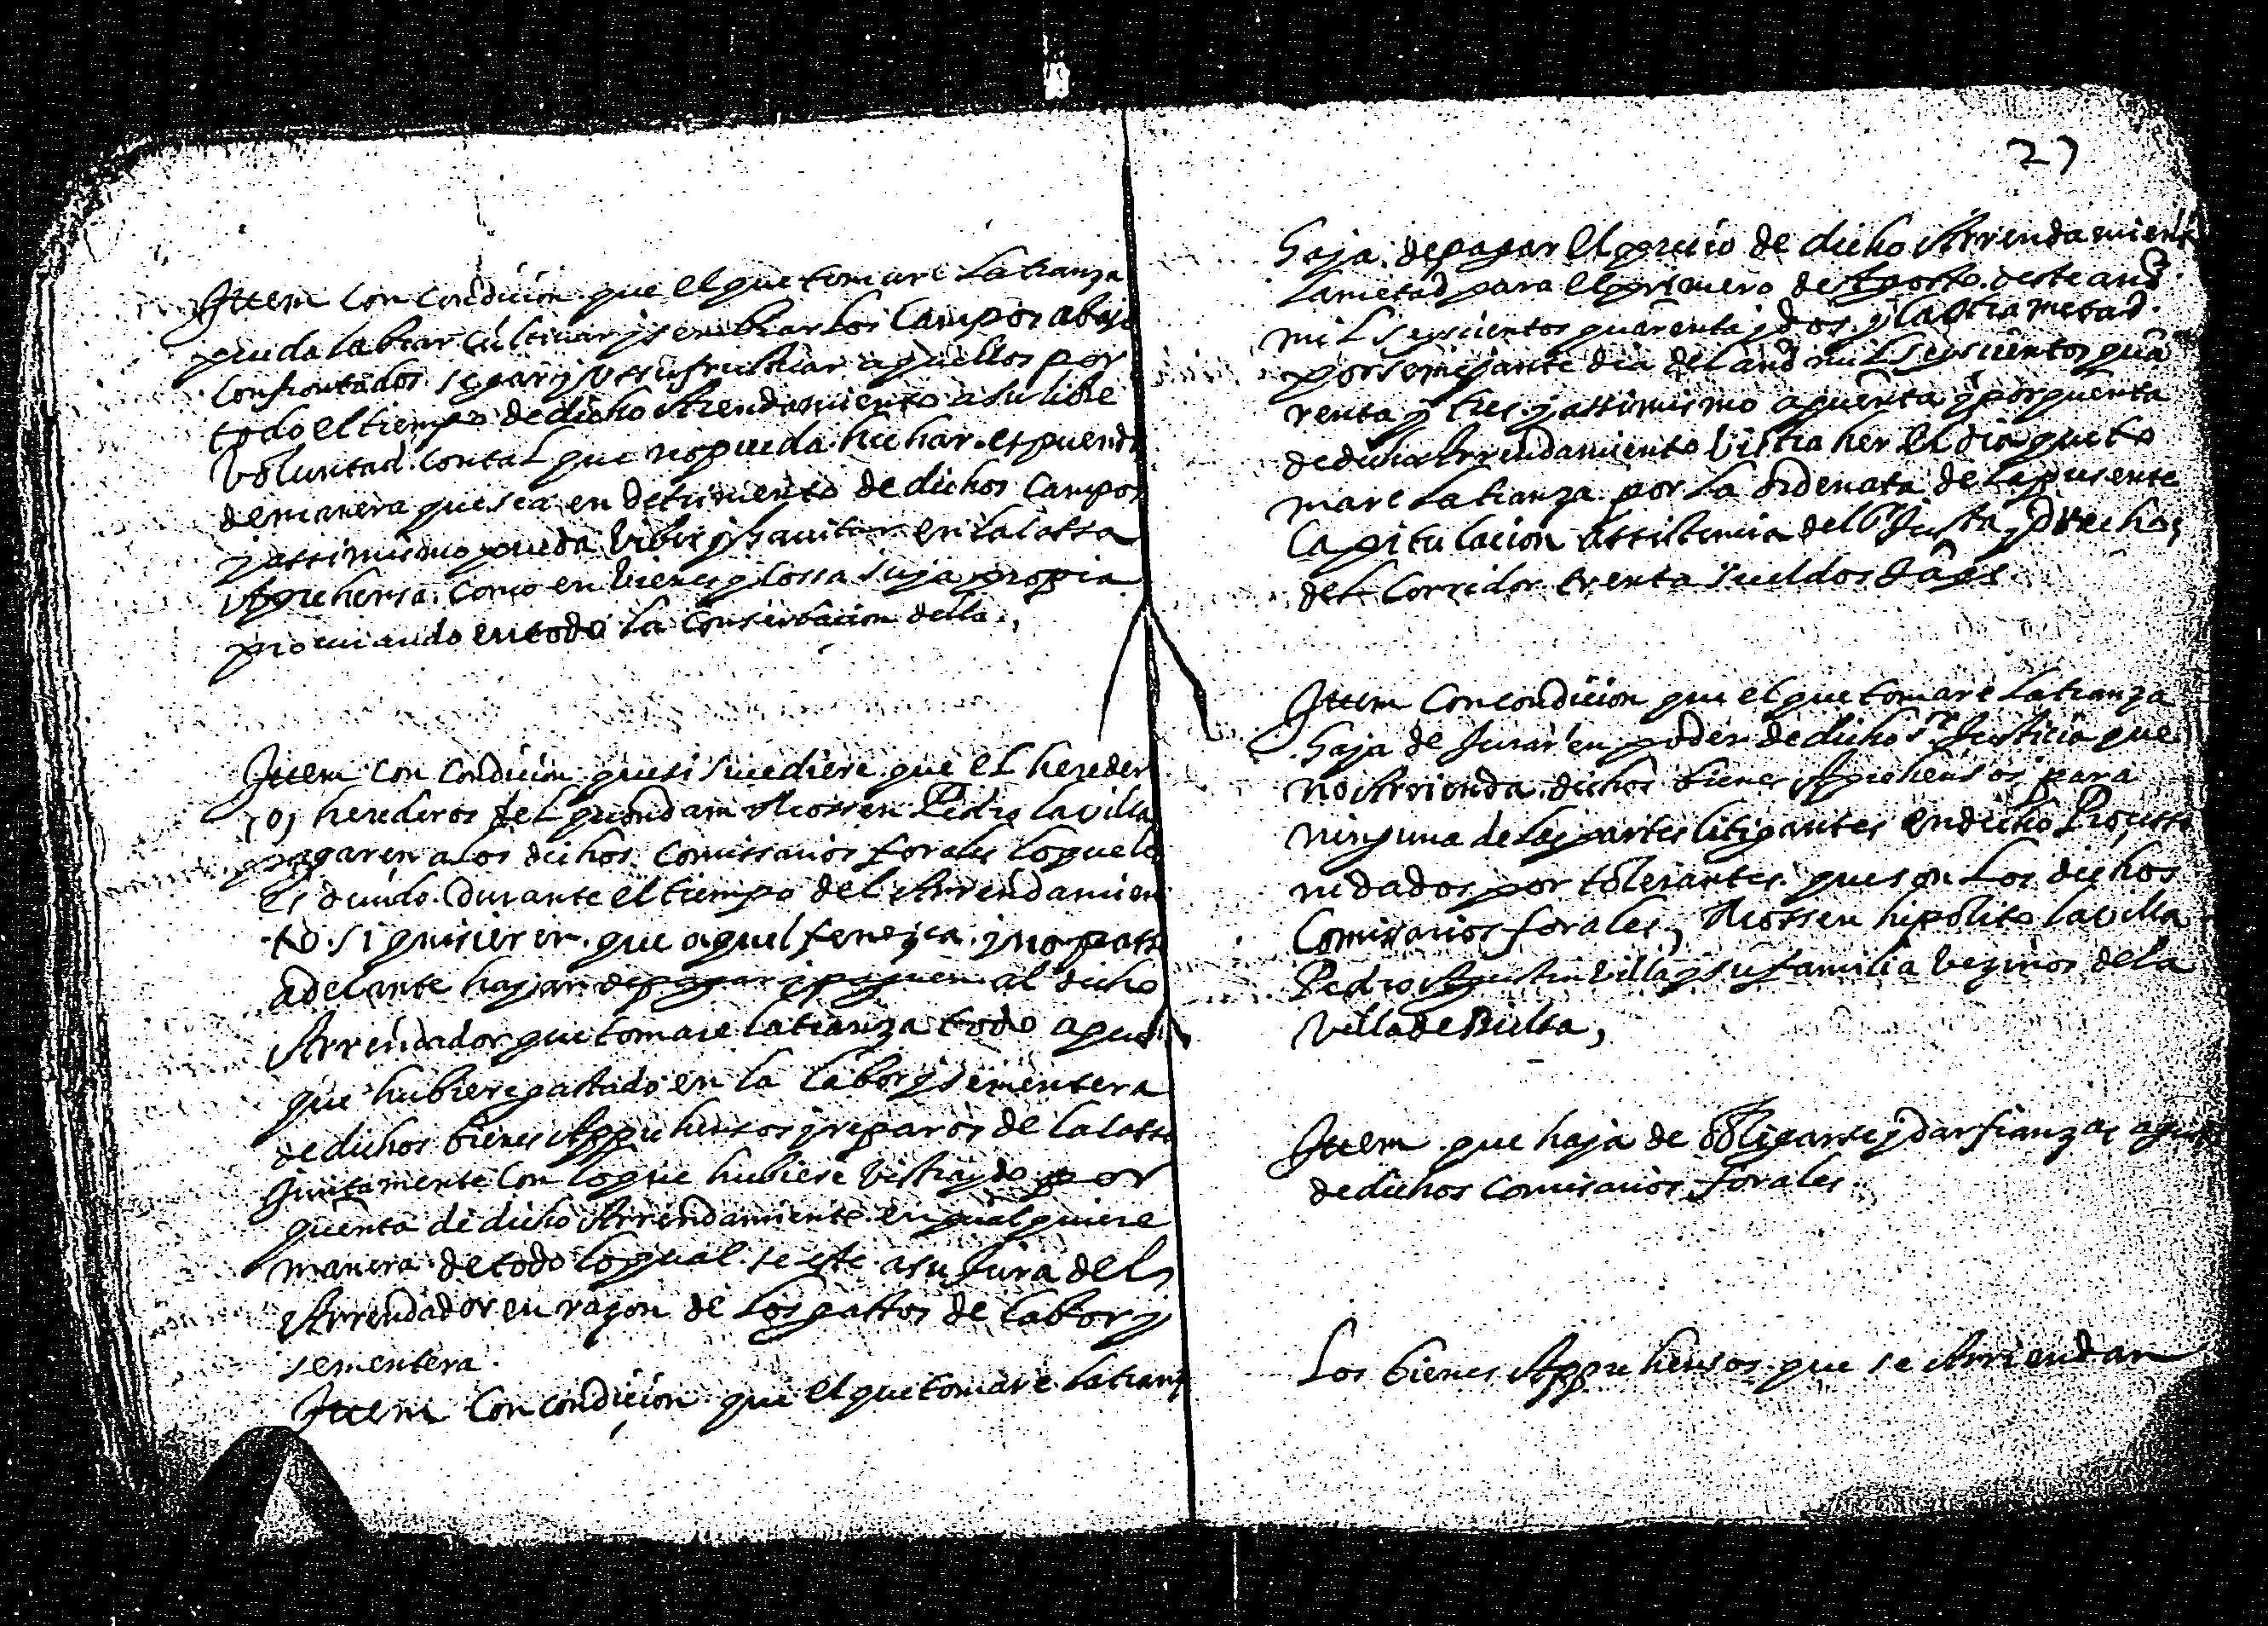 Ittem con condicion que el que tomare latranza
pueda labrar cultivar y sembrar los campos abajo
confrontados segar y usufructuar aquellos por
todo el tiempo de dicho Arrendamiento a su libre
voluntad con tal que no pueda hechar
de manera que sea en detrimento de dichos campos
y assimismo pueda vibir y havitar en la cassa
Aprehensa como en bienes y cossa suya propia
procurando en todo la conserbacion della,
Ittem con condicion que si sucediere que el hereder
, o, herederos del quondam Mossen Pedro la villa
pagaren a los dichos comissarios forales lo que les
es devido durante el tiempo del Arrendamien
to si quisieren que aquel fenezca y no passe
adelante hayan de pagar y paguen al dicho
Arrendador que tomare latranza todo aquel
que hubiere gastado en la labor y sementera
de dichos bienes Apprehensos y reparos de la cassa
juntamente con lo que hubiere bistraydo por
quenta de dicho Arrendamiento en qualquiere
manera de todo lo qual se este a su jura del
Arrendador en razon de los gastos de labor y
sementera.
Ittem con condicion que el que tomare latranz
27
haja de pagar el precio de dicho Arrendamient
la metad para el primero de Agosto deste año
mil seyscientos quarenta y dos y la otra metad
por semejante dia del año mil seyscientos qua
renta y tres y assimismo a quenta y por quenta
de dicho Arrendamiento bistraher el dia que to
mare latranza por la ordenata de la presente
capitulacion assistencia del Justa, y drechos
del corridor trenta sueldos
Ittem con condicion que el que tomare latranza
haja de jurar en poder de dicho Sr Justicia que
no Arrienda dichos bienes Aprehensos para
ninguna de las partes litigantes en dicho Processo
ni dados por tolerantes que son los dichos
Comissarios forales, Mossen hipolito la villa
Pedro Agustin villa y su familia vezinos de la
villa de Bielsa,
Ittem que haja de obligarse y dar fianzas a
de dichos comisarios forales.
Los bienes Apprehensos que se Arriendan